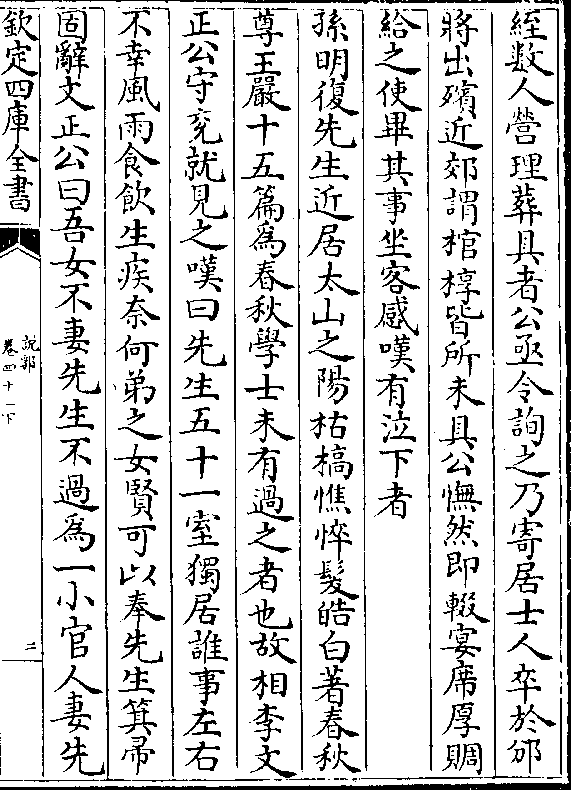 絰数人營理葬具者公亟令詢之乃寄居士人卒於邠
將出殯近郊謂棺椁皆所未具公憮然即輟宴席厚賙
給之使畢其事坐客感嘆有泣下者
孫明復先生近居太山之陽枯槁憔悴髮皓白著春秋
尊王嚴十五篇為春秋學士未有過之者也故相李文
正公守兖就見之嘆曰先生五十一室獨居誰事左右
不幸風雨食飲生疾奈何弟之女賢可以奉先生箕帚
固辭文正公曰吾女不妻先生不過為一小官人妻先
欽定四庫全書
說郛
卷四十一下
三